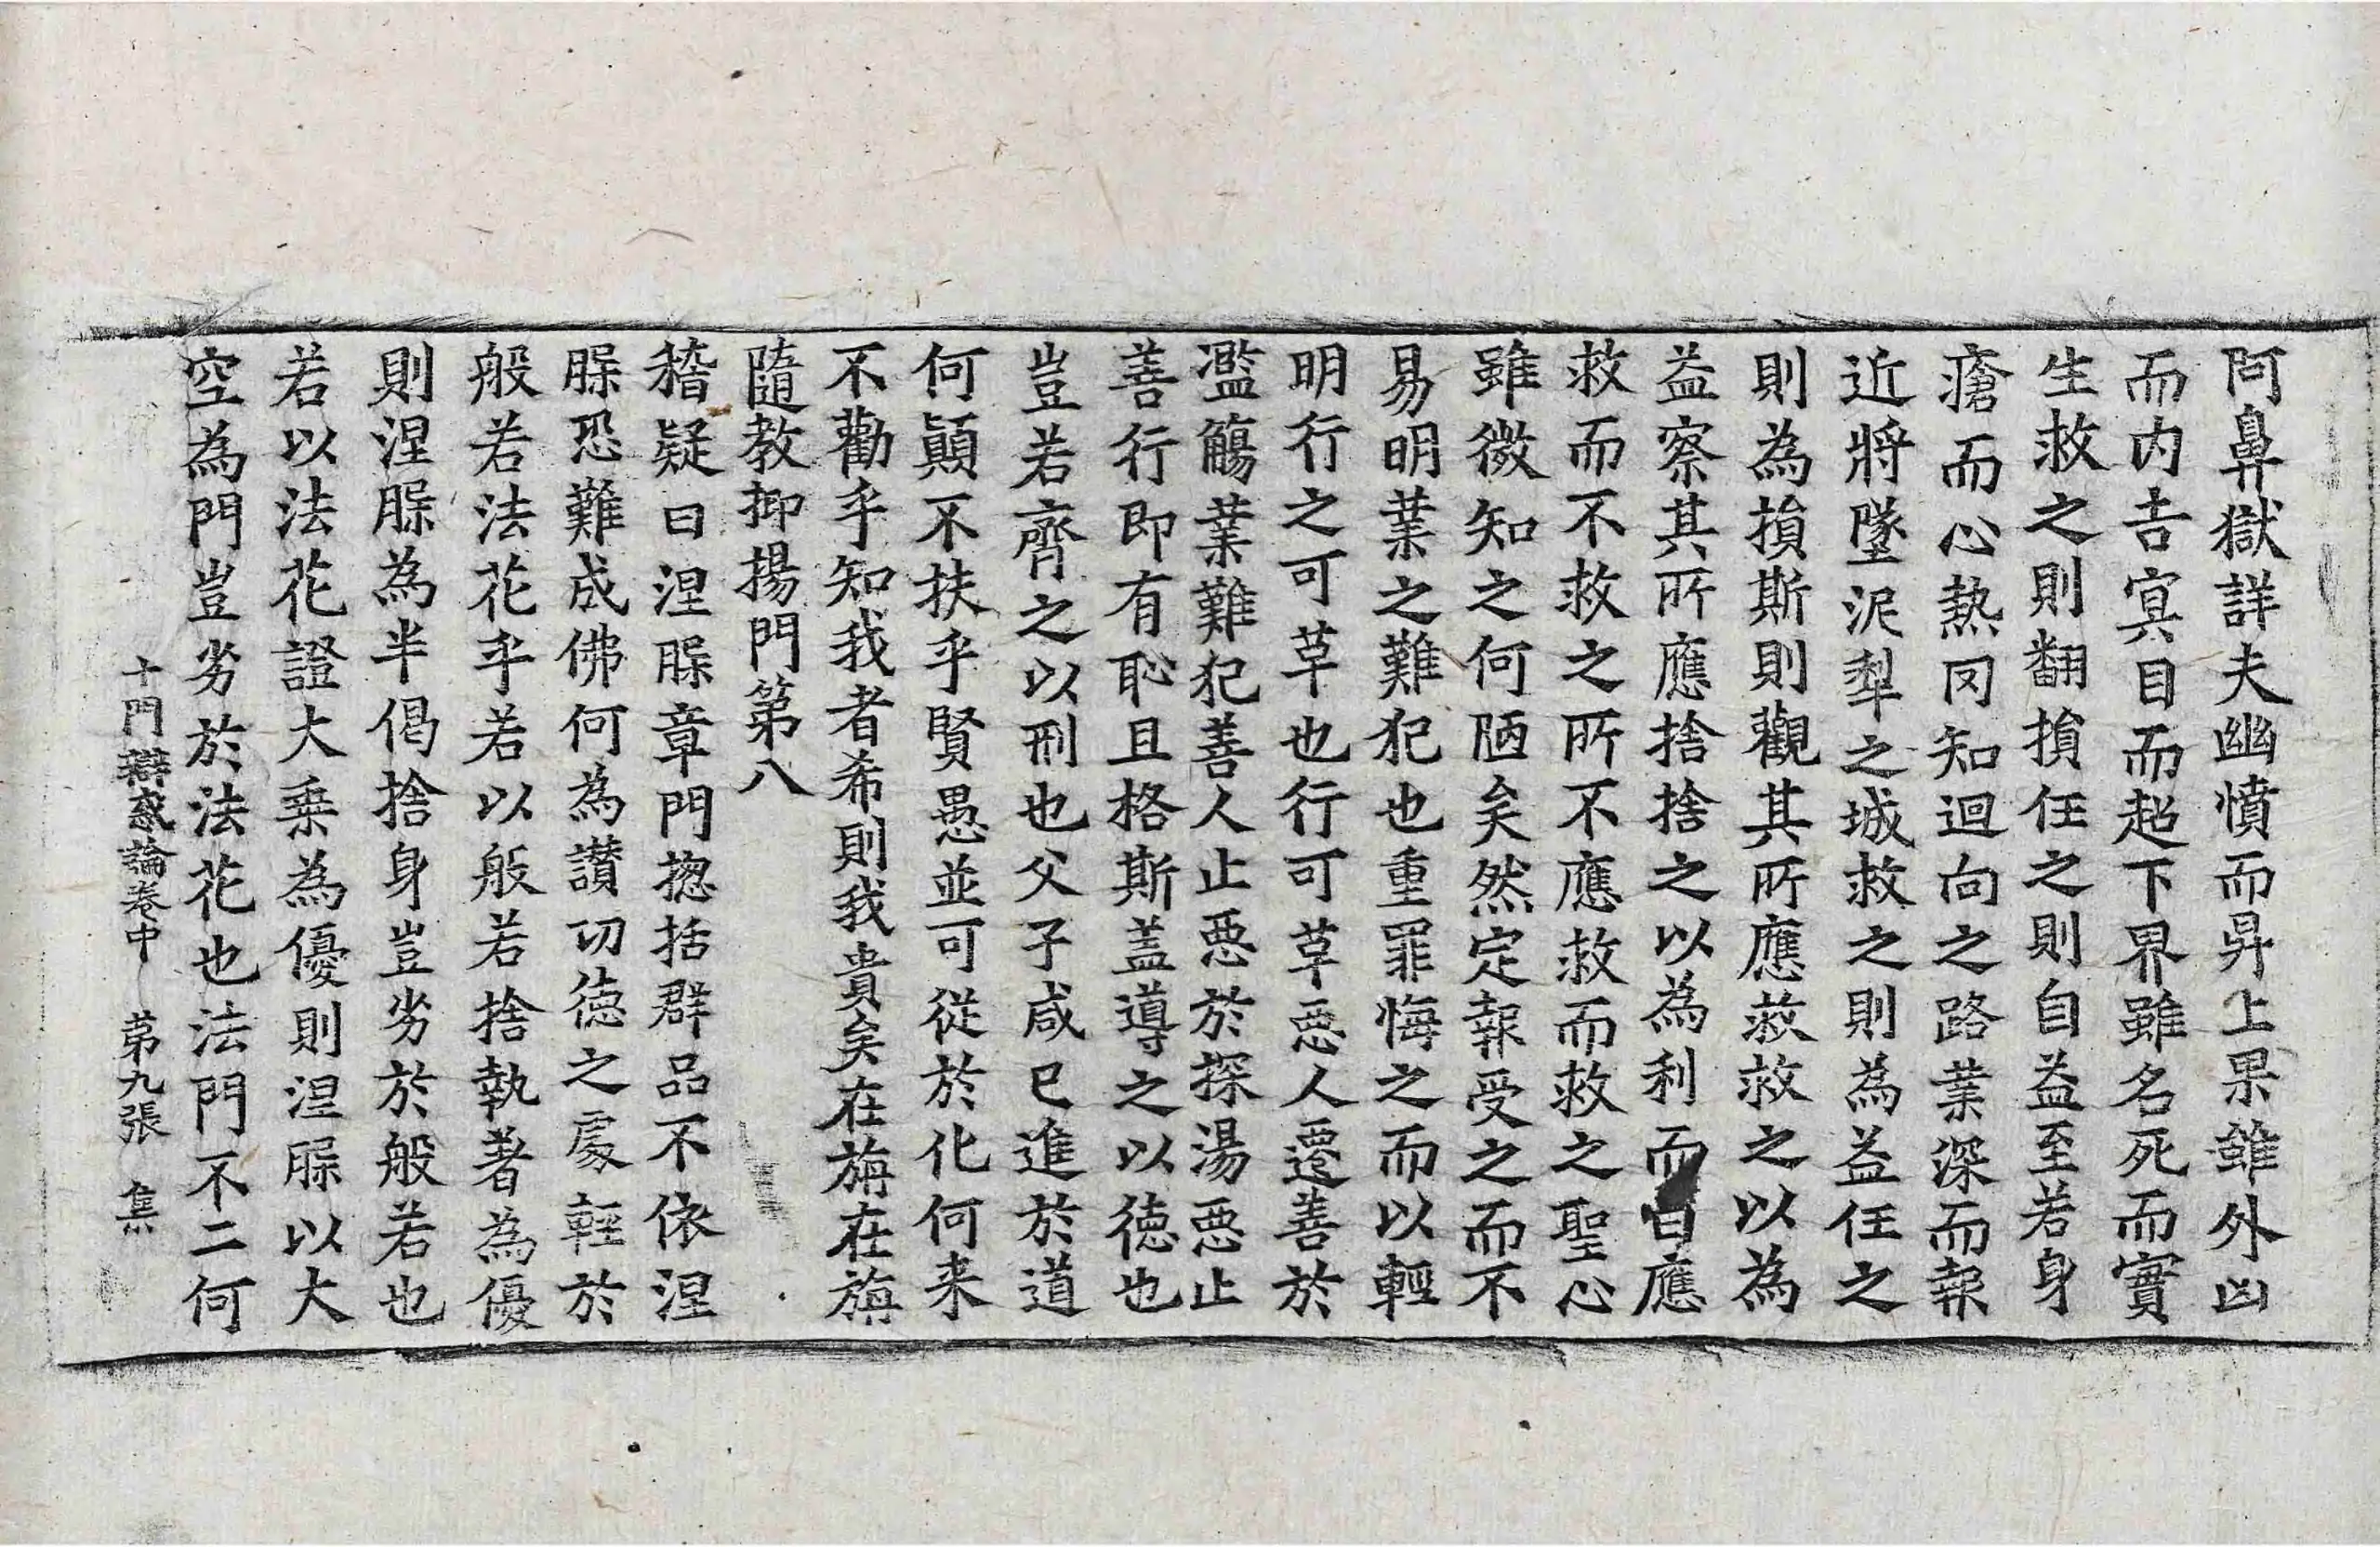 阿鼻獄詳夫幽憤而昇上果雖外凶
而内吉寘目而超下界雖名死而實
生救之則翻損任之則自益至若身
瘡而心熱罔知迴向之路業深而報
近將墜泥犁之城救之則為益任之
則為損斯則觀其所應救救之以為
益察其所應捨捨之以為利而曰應
救而不救之所不應救而救之聖心
雖微知之何陋矣然定報受之而不
易明業之難犯也重罪悔之而以輕
明行之可草也行可草惡人遷善於
濫觴業難犯善人止惡於探湯惡止
善行即有恥且格斯盖導之以德也
豈若齊之以刑也父子咸已進於道
何顛不扶乎賢愚並可從於化何来
不勸乎知我者希則我貴矣在旃在旃
隨教抑揚門第八
稽疑曰涅槃章門揔括群品不依涅
槃恐難成佛何為讃切德之處輕於
般若法花乎若以般若捨執著為優
則涅槃為半偈捨身豈劣於般若也
若以法花證大乗為優則涅槃以大
空為門豈劣於法花也法門不二何
十門辯惑論卷中 苐九張 集